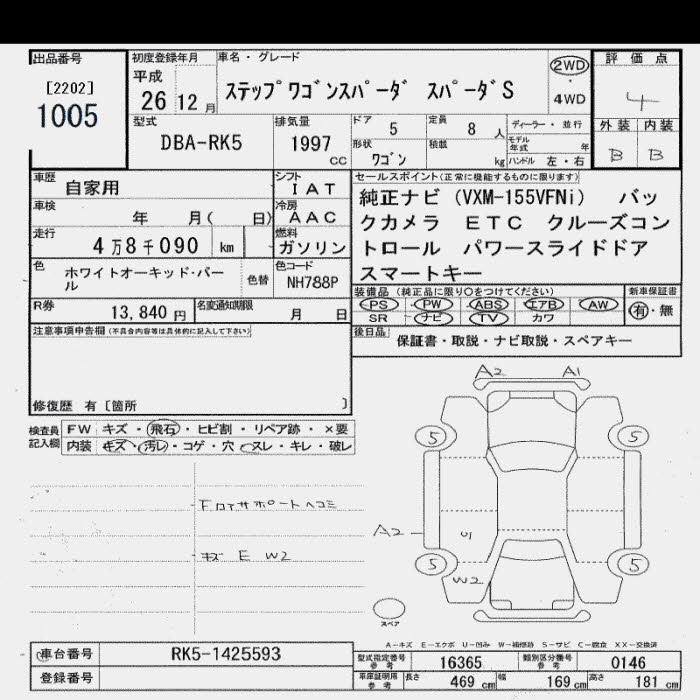 出品番号
[2202]
1005
初度登録年月
平成
26 12 月
車名・グレード
ステップワゴンスパーダ スパーダS
2WD
・
4WD
評価点
4
外装 内装
B B
型式
DBA-RK5
排気量
1997
CC
ドア
5
定員
8 人
ディーラー・並行
モデル年式 年
形状
ワゴン
積載
kg
ハンドル 左・右
車歴
自家用
シフト
IAT
車検
年 月( 日)
冷房
AAC
走行
4万8千090 km
燃料
ガソリン
色
ホワイトオーキッド・パール
色替
色コード
NH788P
R券
13,840 円
名変通知期限
月 日
セールスポイント(正常に機能するものに限ります)
純正ナビ (VXM-155VFNi) バッ
クカメラ ETC クルーズコン
トロール パワースライドドア
スマートキー
装備品 (純正品に限り○をつけてください)
PS PW ABS エアB AW
SR ナビ TV カワ
新車保証書
有・無
後日品
保証書・取説・ナビ取説・スペアキー
注意事項申告欄 (不具合内容等は具体的に記入して下さい)
修復歴 有 [箇所 ]
検査員
記入欄
FW キズ・飛石・ヒビ割・リペア跡・×要
内装 キズ・汚レ・コゲ・穴・スレ・キレ・破レ
Fロアサポートヘコミ
キズ E W2
A2 A1
5 5
A2
U1
5 5
W2
スペア
A-キズ E-エクボ U-凹み W-補修跡 S-サビ C-腐食 XX-交換済
車台番号
RK5-1425593
登録番号
型式指定番号
参考
16365
類別区分番号
参考
0146
車庫証明用
参考
長さ 469 cm 幅 169 cm 高さ 181 cm